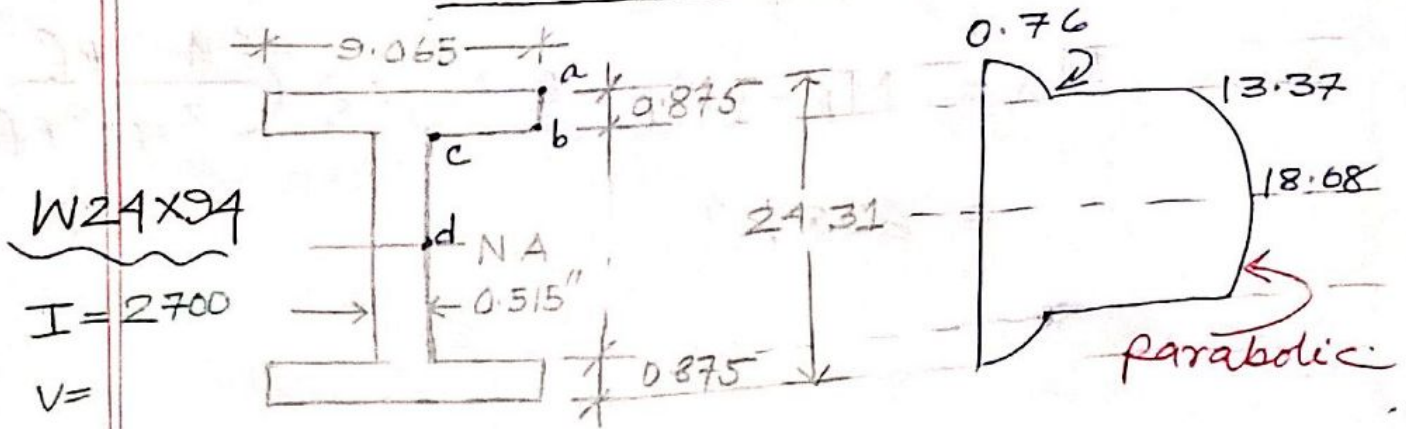 9.065
a
0.875
b
c
W24X94
d
N A
I = 2700
0.515"
V=
24.31
0.875
0.76
13.37
18.68
parabolic.